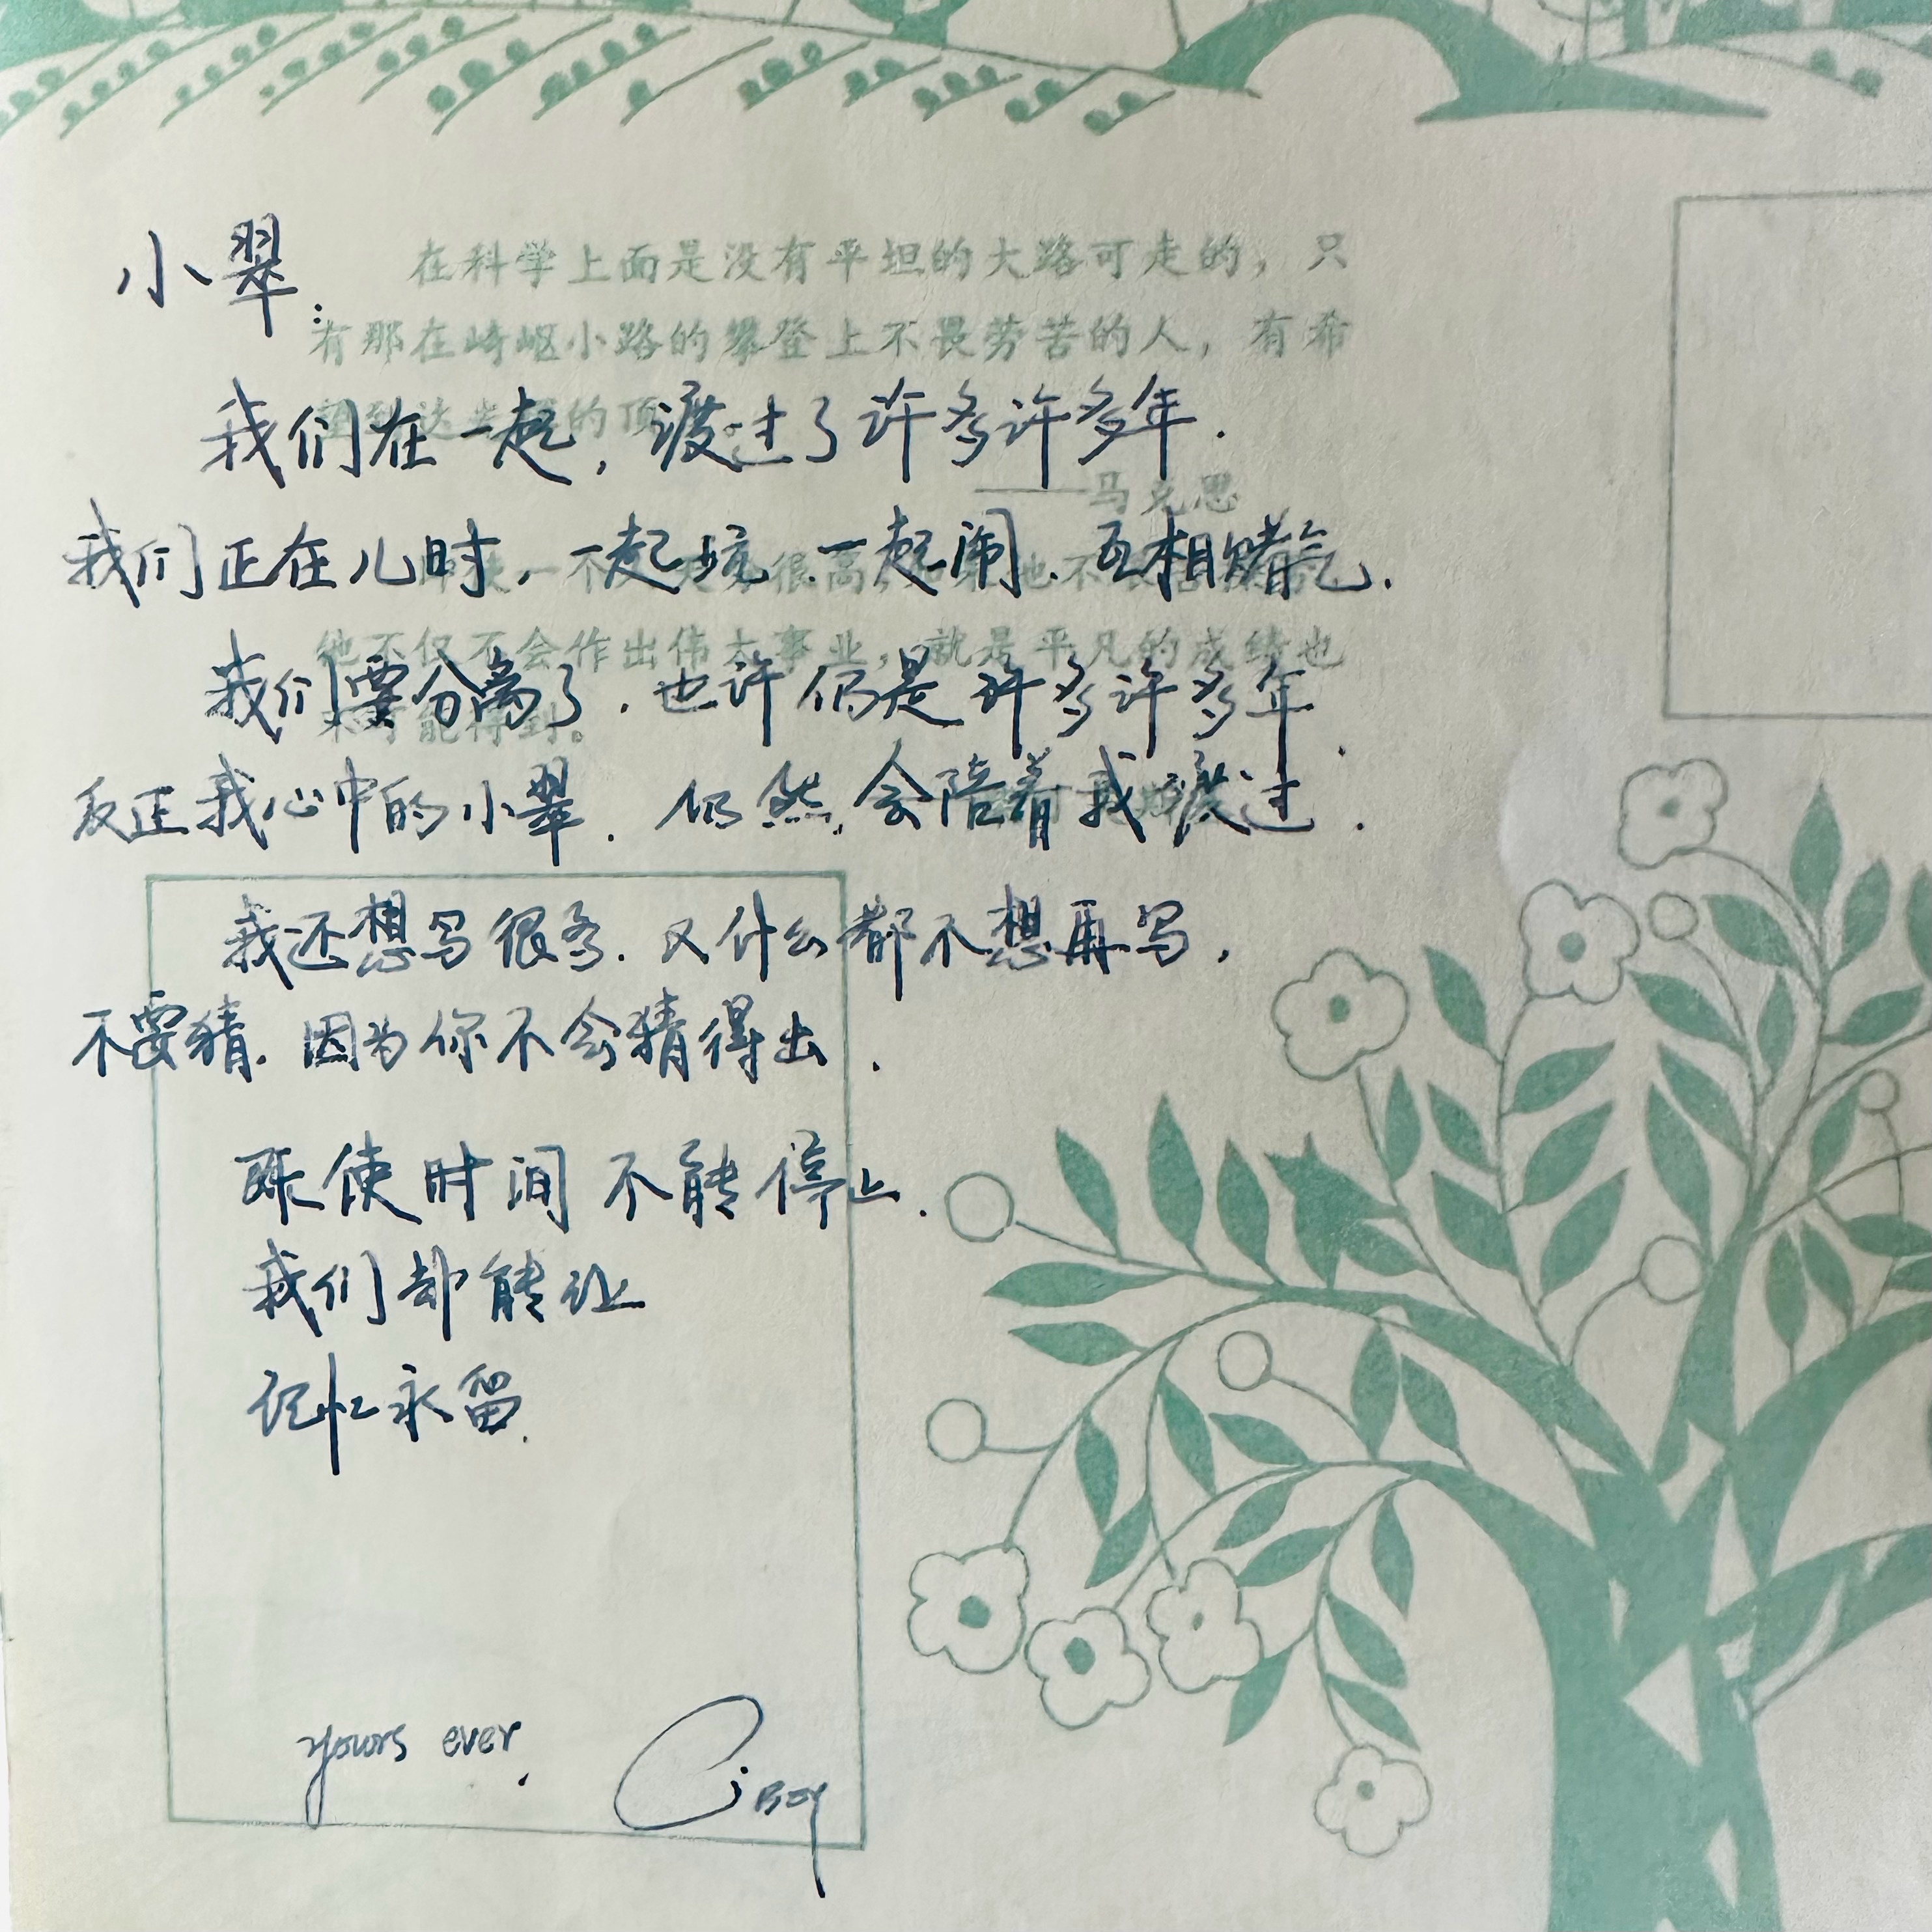 小翠:
在科学上面是没有平坦的大路可走的，只
有那在崎岖小路的攀登上不畏劳苦的人，有希
我们在一起，渡过了许多许多年.
——马克思
我们正在儿时，一起玩、一起闹、互相赌气.
他不仅不会作出伟大事业，就是平凡的成绩也
我们要分离了.也许仍是许多许多年.
不可能得到。
反正我心中的小翠.仍然会陪着我渡过.
我还想写很多.又什么都不想再写.
不要猜.因为你不会猜得出.
既使时间不能停止.
我们却能让
记忆永留.
yours ever,